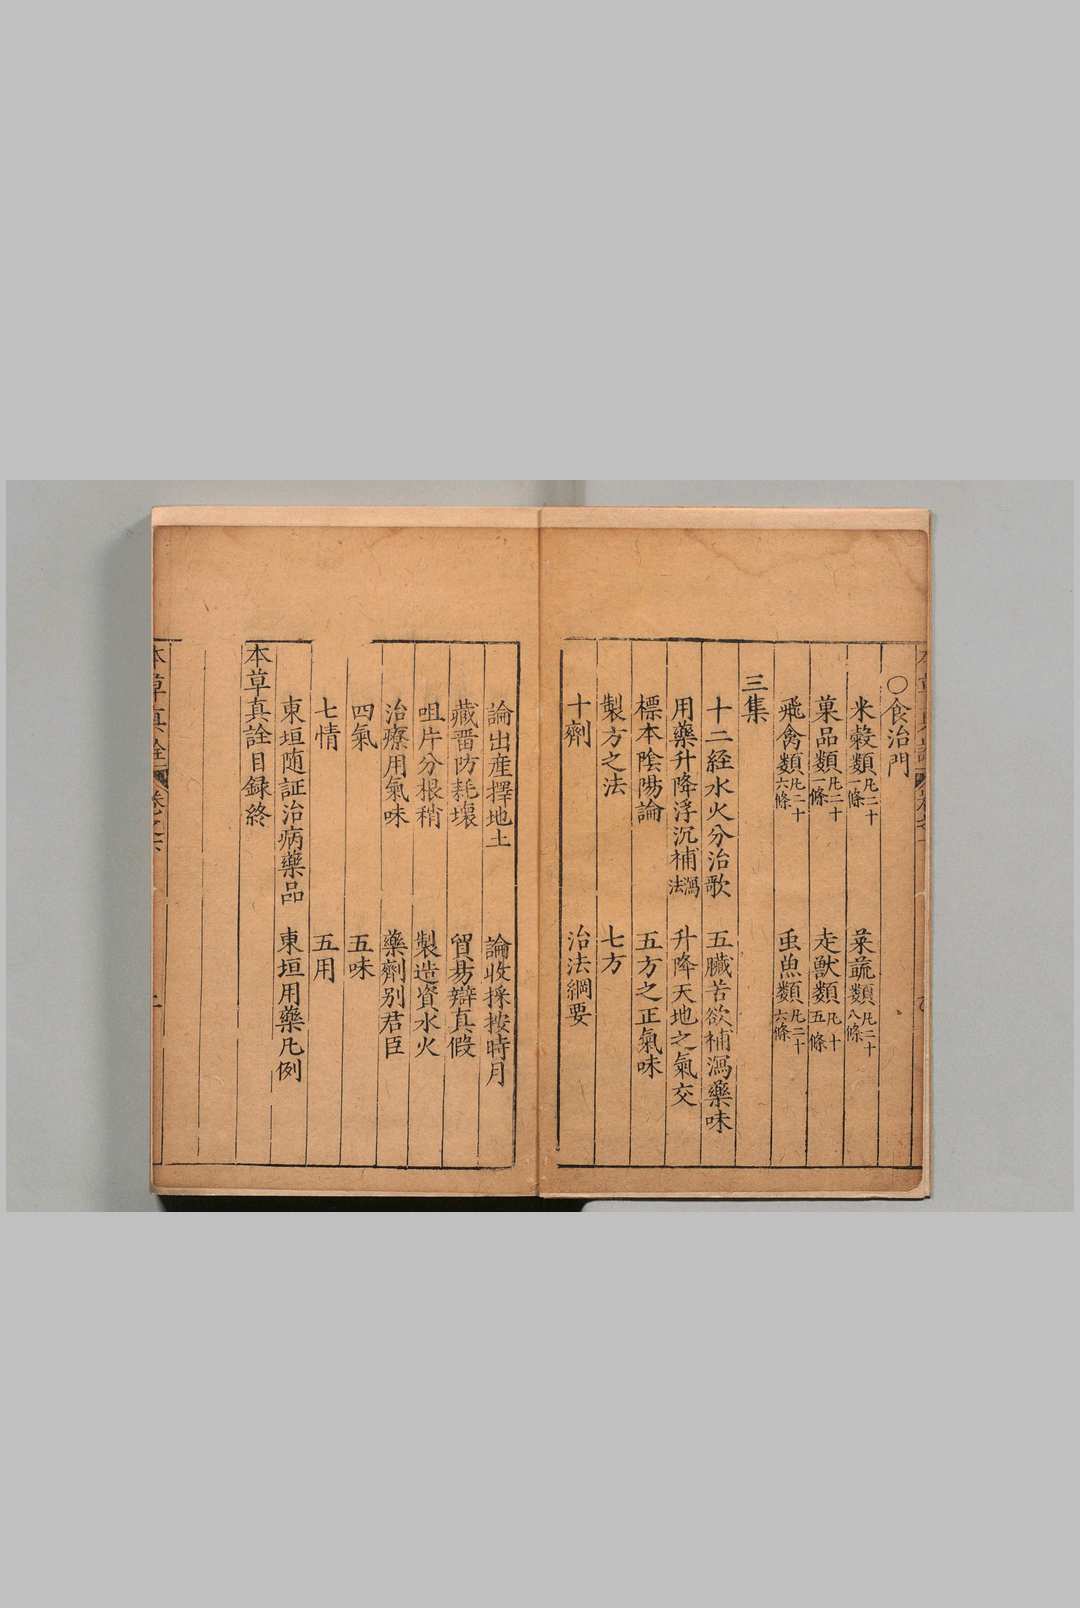 ○食治門
米穀類凡二十一條　菜蔬類凡二十八條
菓品類凡二十一條　走獸類凡十五條
飛禽類凡二十六條　虫魚類凡二十六條
三集
十二経水火分治歌　五臟苦欲補瀉藥味
用藥升降浮沉補瀉法　升降天地之氣交
標本陰陽論　五方之正氣味
製方之法　七方
十劑　治法綱要
論出産擇地土　論收採按時月
藏畱防耗壞　貿易辯真假
咀片分根稍　製造資水火
治療用氣味　藥劑别君臣
四氣　五味
七情　五用
東垣随証治病藥品　東垣用藥凡例
本草真詮目録終
本草真詮